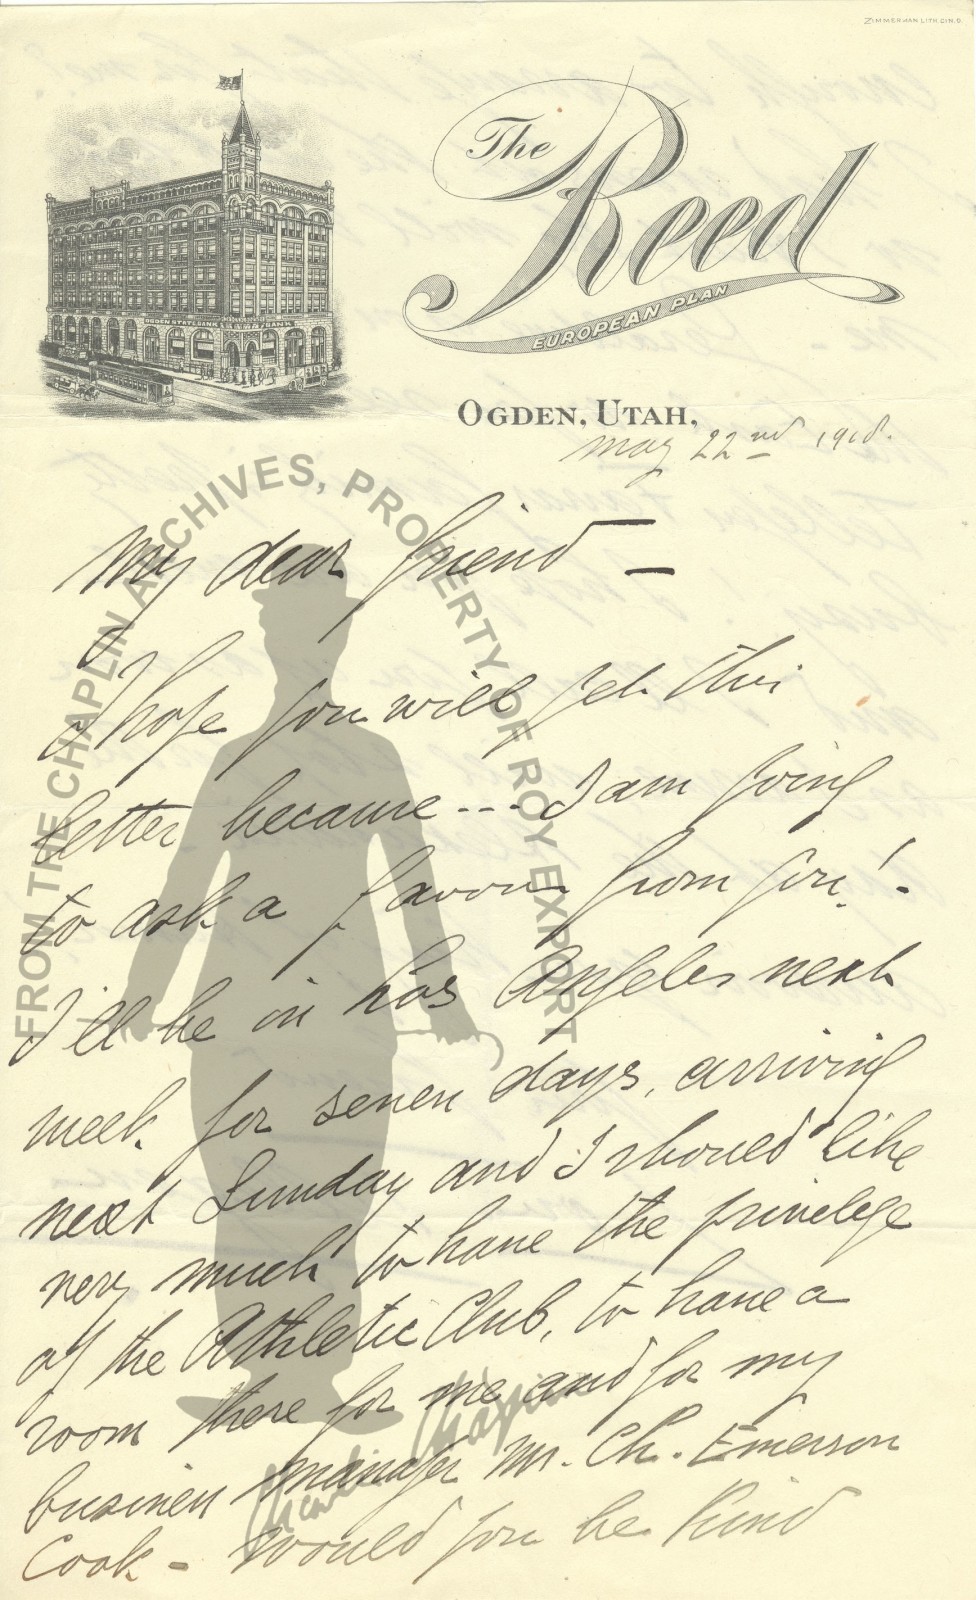 ZIMMERMAN LITH. CIN. O.
The Reed
EUROPEAN PLAN
OGDEN STATE BANK
OGDEN, UTAH,
May 22nd 1918.
My dear friend —
I hope you will get this
letter because --- I am going
to ask a favour from you! -
I'll be in Los Angeles next
week for seven days, arriving
next Sunday and I should like
very much to have the privelege
of the Athletic Club, to have a
room there for me and for my
business manager Mr. Ch. Emerson
Cook - Would you be kind
FROM THE CHAPLIN ARCHIVES, PROPERTY OF ROY EXPORT
Charlie Chaplin